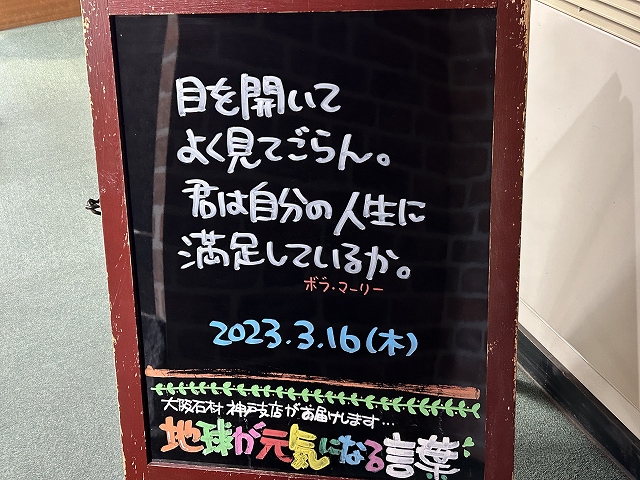 目を開いて
よく見てごらん。
君は自分の人生に
満足しているか。
ボラ・マーリー
2023.3.16(木)
大阪石材 神戸支店がお届けします…
地球が元気になる言葉